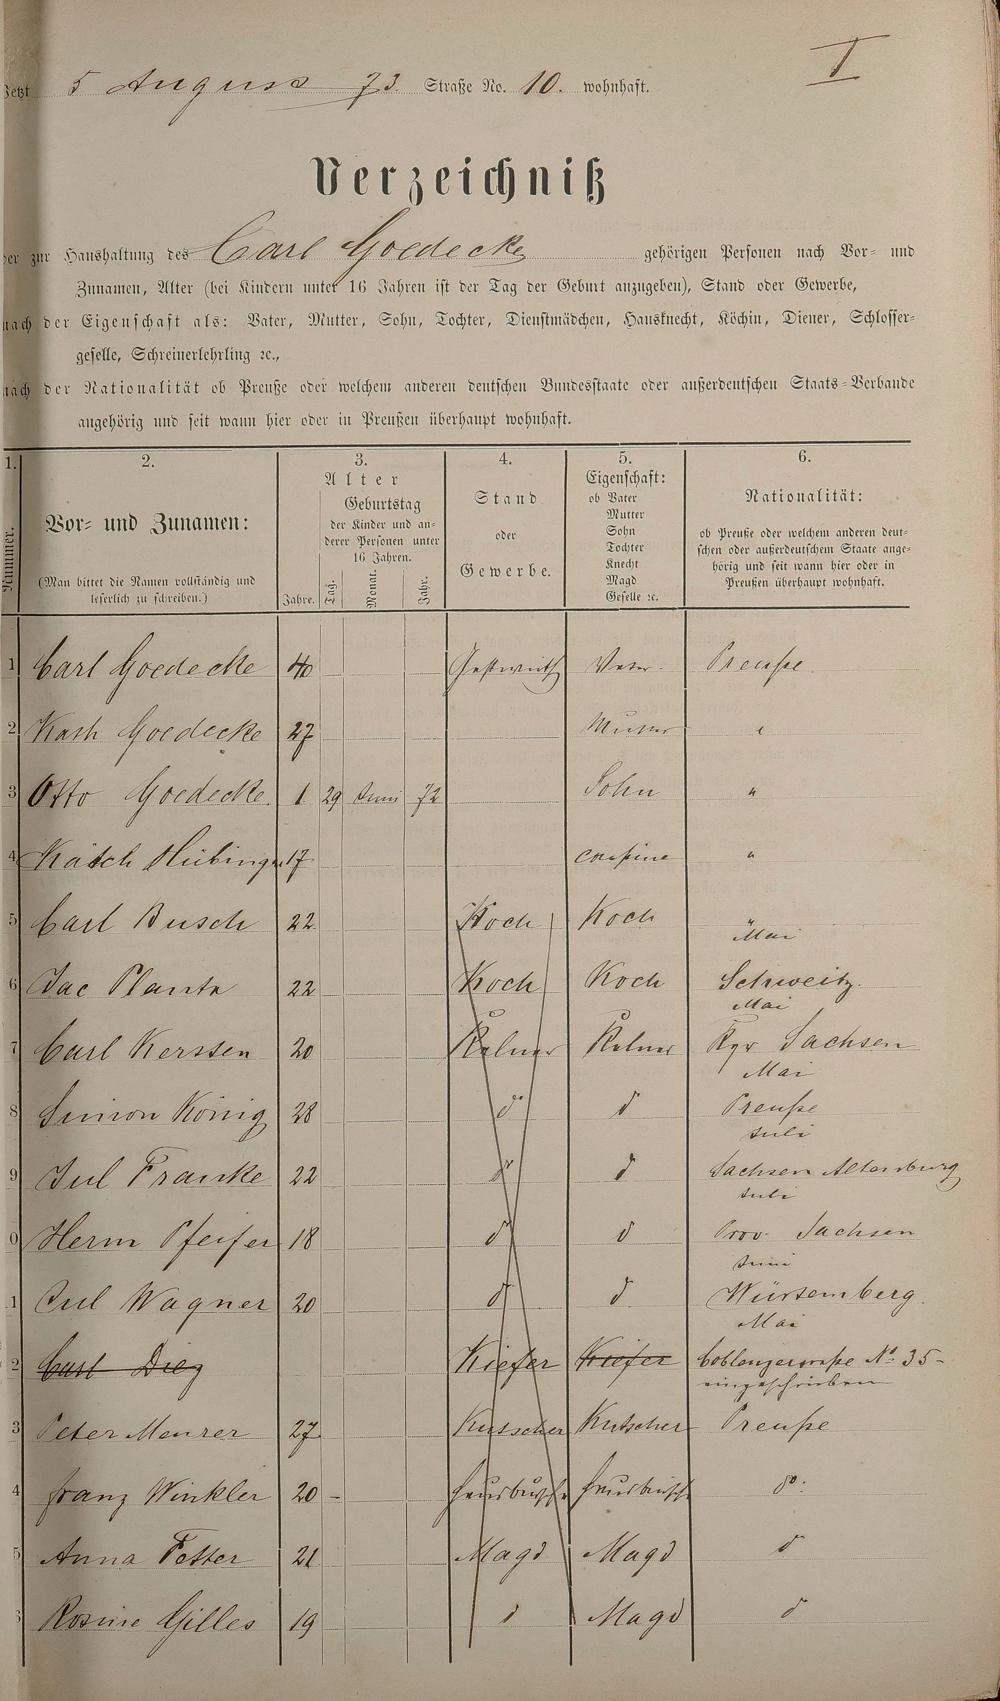 I
Jetzt 5 August 73. Straße No. 10. wohnhaft.
Verzeichniß
der zur Haushaltung des Carl Goedecke gehörigen Personen nach Vor- und
Zunamen, Alter (bei Kindern unter 16 Jahren ist der Tag der Geburt anzugeben), Stand oder Gewerbe,
nach der Eigenschaft als: Vater, Mutter, Sohn, Tochter, Dienstmädchen, Hausknecht, Köchin, Diener, Schlosser-
geselle, Schreinerlehrling ꝛc.,
nach der Nationalität ob Preuße oder welchem anderen deutschen Bundesstaate oder außerdeutschen Staats-Verbande
angehörig und seit wann hier oder in Preußen überhaupt wohnhaft.
1.
Nummer.
2.
Vor- und Zunamen:
(Man bittet die Namen vollständig und
leserlich zu schreiben.)
3.
Alter
Jahre.
Geburtstag
der Kinder und an-
derer Personen unter
16 Jahren.
Tag.
Monat.
Jahr.
4.
Stand
oder
Gewerbe.
5.
Eigenschaft:
ob Vater
Mutter
Sohn
Tochter
Knecht
Magd
Geselle ꝛc.
6.
Nationalität:
ob Preuße oder welchem anderen deut-
schen oder außerdeutschem Staate ange-
hörig und seit wann hier oder in
Preußen überhaupt wohnhaft.
1 Carl Goedecke 40 Gastwirth Vater Preuße
2 Kath Goedecke 27 Mutter "
3 Otto Goedecke. 1 29 Juni 72 Sohn "
4 Kätch 17 Cousine "
5 Carl Busch 22 Koch Koch "
Mai
6 Jac Planta 22 Koch Koch Schweitz.
Mai
7 Carl Kersten 20 Kelner Kelner Kgr Sachsen
Mai
8 Simon König 28 do d Preuße
Juli
9 Jul Franke 22 do d Sachsen Altenburg
Juli
0 Herm Pfeifer 18 d d Prov. Sachsen
Juni
1 Jul Wagner 20 d d Würtemberg.
Mai
2 Carl Diez Kiefer Kiefer Coblenzerstraße No 35-
eingeschrieben
3 Peter Meurer 27 Kutscher Kutscher Preuße
4 Franz Winkler 20 - Hausbursche Hausbursche do.
5 Anna Fetter 21 Magd Magd d
6 Rosine Gilles 19 d Magd d